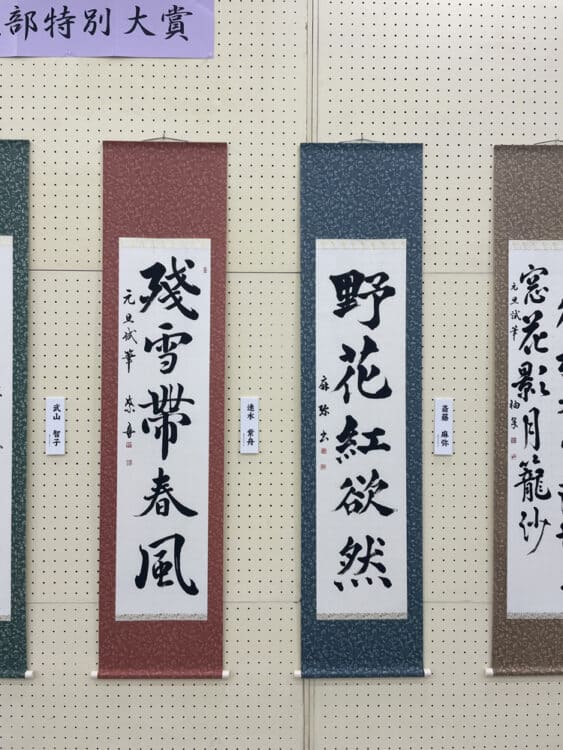 部特別大賞
窓花影月籠沙
元旦試筆
斎藤 麻弥
野花紅欲然
麻弥書
速水 紫舟
残雪帯春風
元旦試筆 紫舟
武山 智子